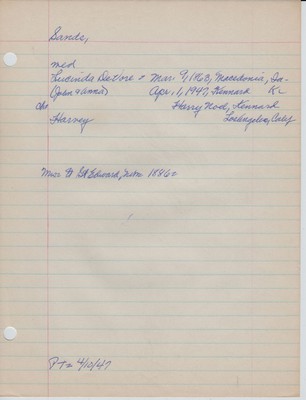 Sands,
med
Lucinda DeVore - Mar. 9, 1863, Macedonia, Ia-
(Jean & Anna) Apr. 1, 1947, Kennard Kc
ch Harry Noel, Kennard
Harvey Los Angeles, Calif
Mos to St Edward, Nebr 1886-
PT = 4/10/47